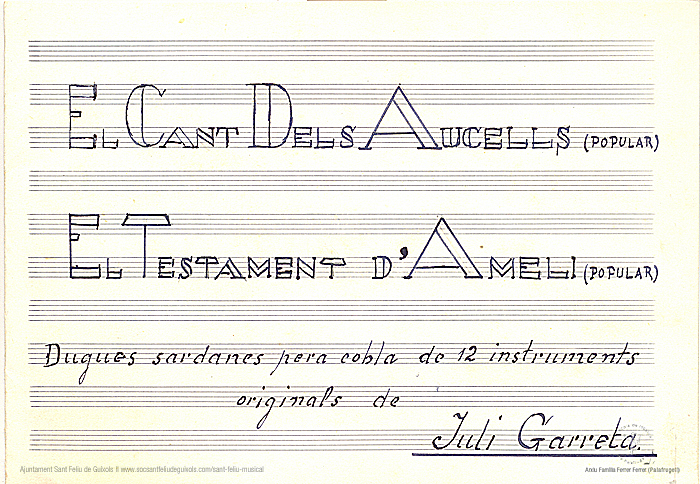 El Cant Dels Aucells (POPULAR)
El Testament d'Ameli (POPULAR)
Dugues sardanes pera cobla de 12 instruments
originals de
Juli Garreta.
Ajuntament Sant Feliu de Guíxols // www.socsantfeliudeguixols.com/sant-feliu-musical
Arxiu Família Ferrer Ferret (Palafrugell)